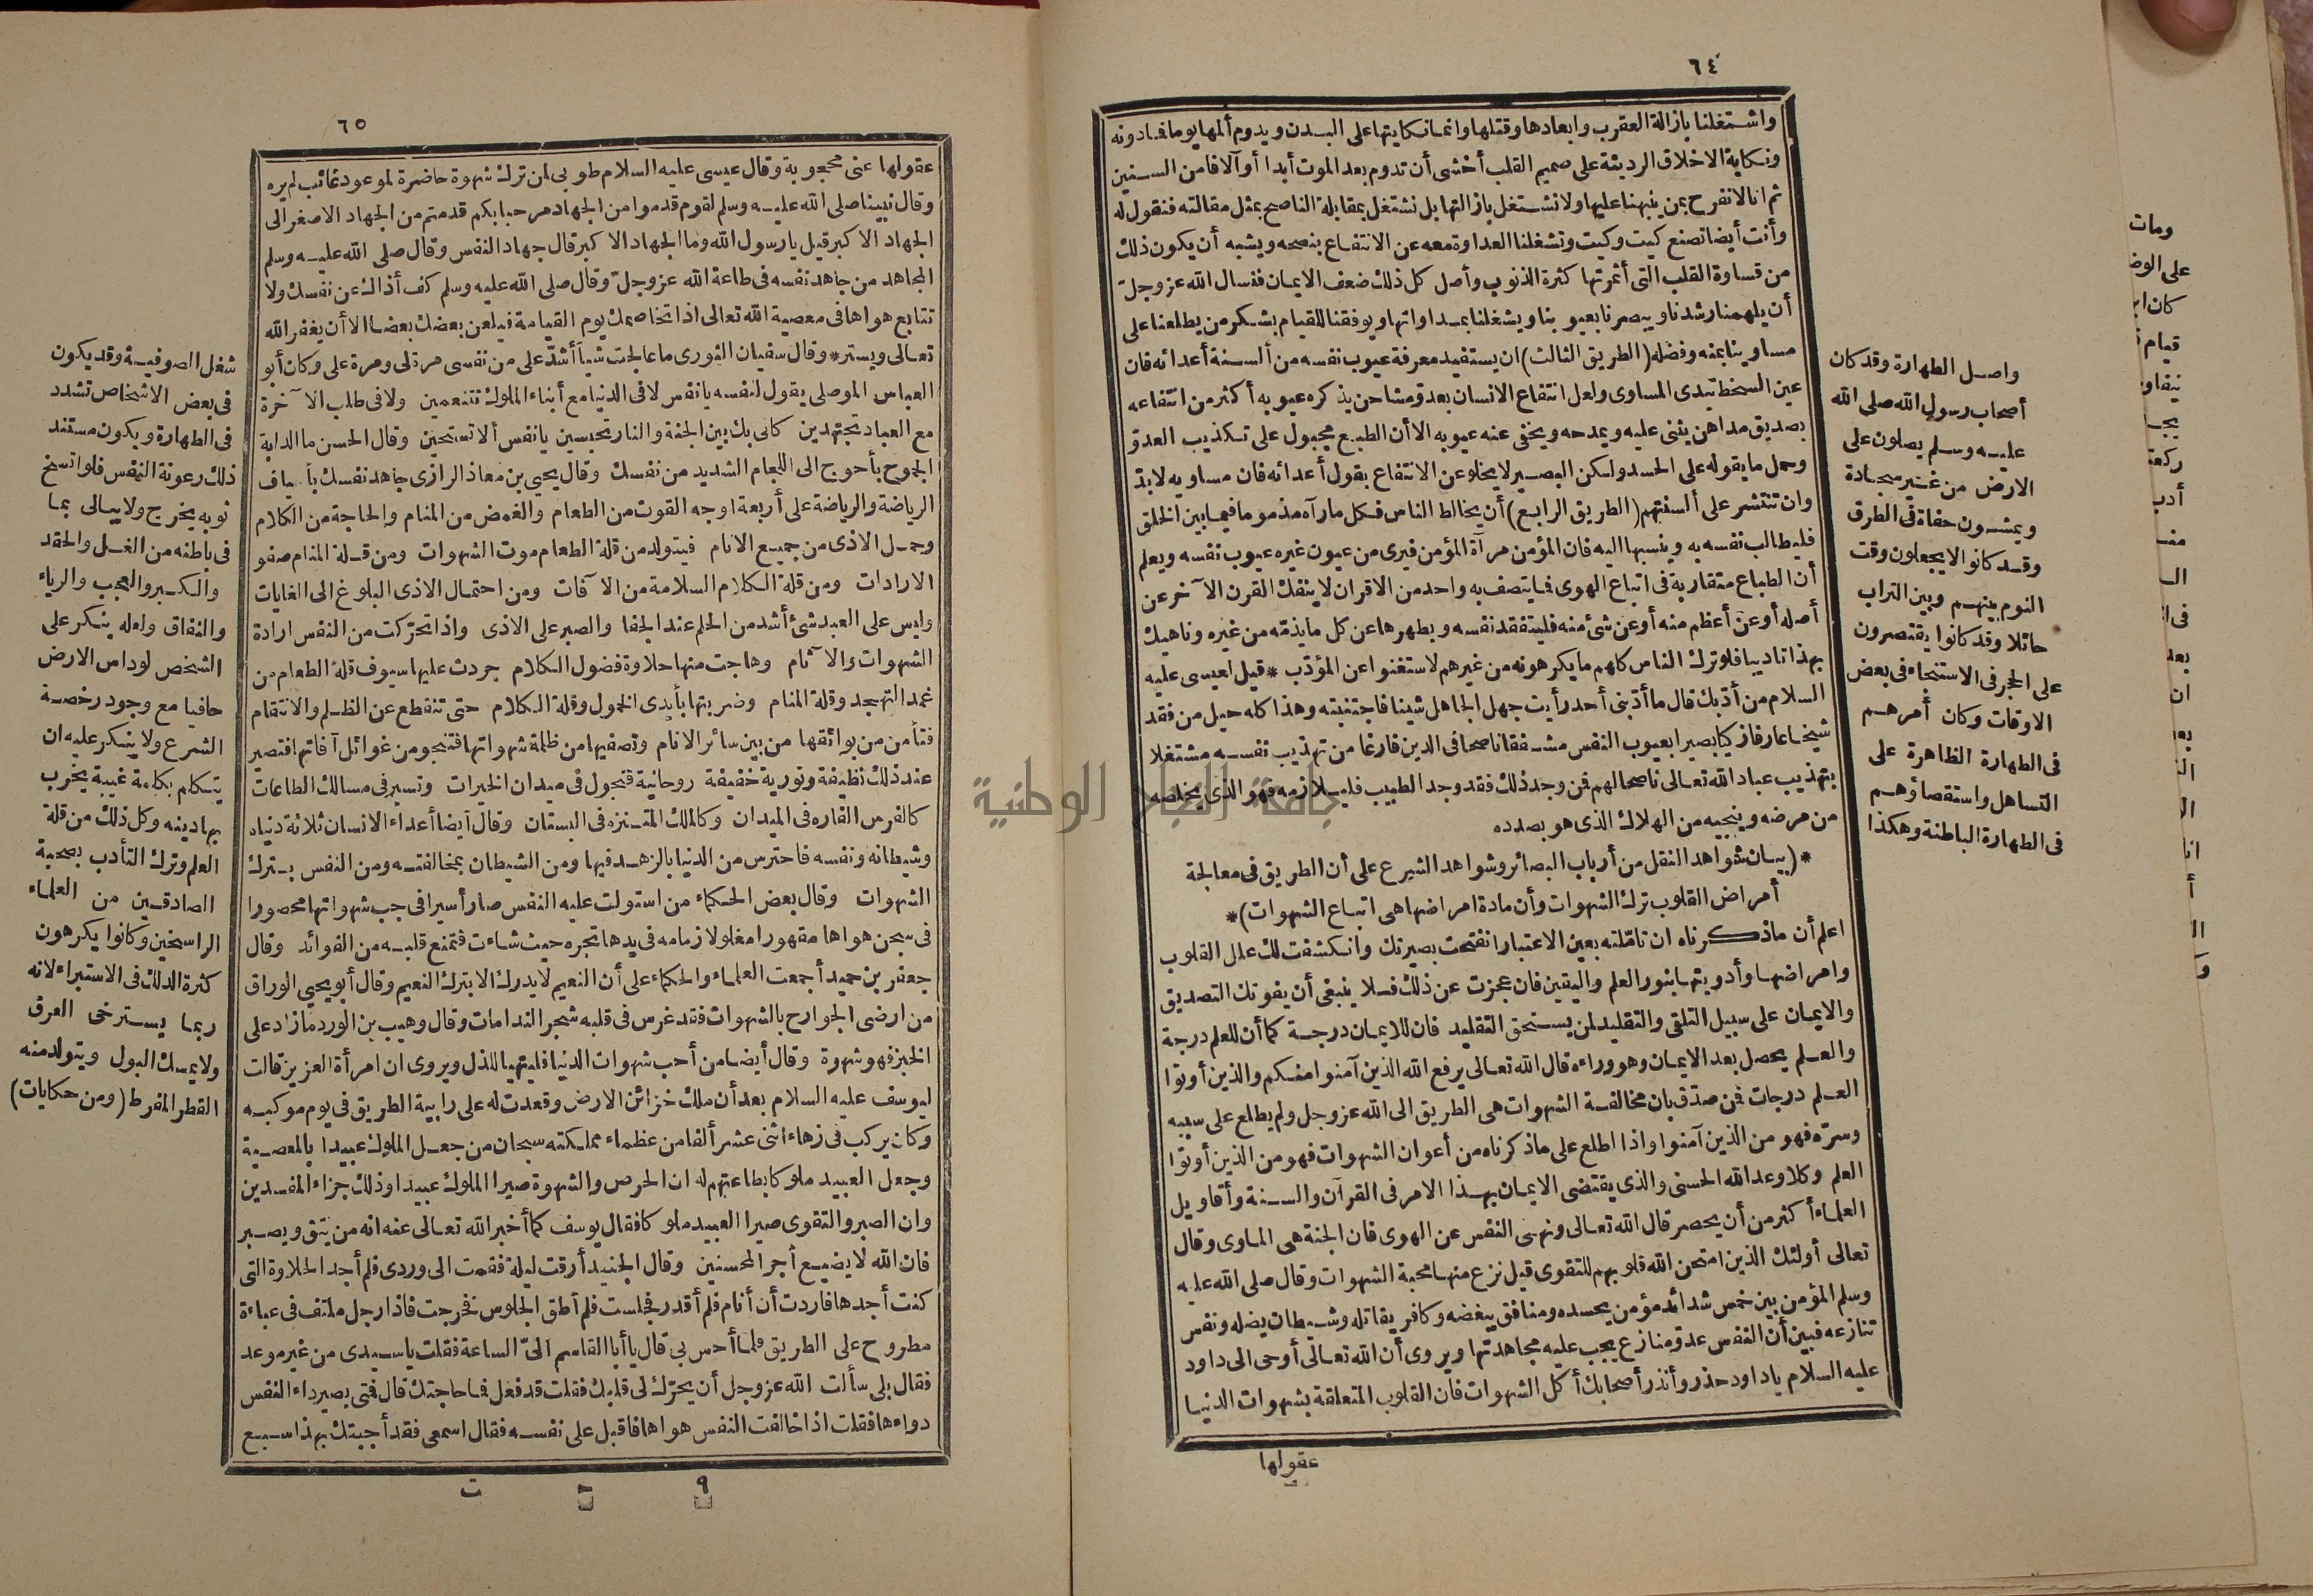 ٦٤
واشتغلنا بازالة العقرب وابعادها وقتلها وانما نكايتها على البدن ويدوم ألمها يوما فما دونه
ونكاية الاخلاق الرديئة على صميم القلب أخشى أن تدوم بعد الموت أبدا أو آلافا من السنين
ثم انا لا نفرح بمن ينبهنا عليها ولا نشتغل بازالتها بل نشتغل بمقابلة الناصح بمثل مقالته فنقول له
وأنت أيضا تصنع كيت وكيت وتشغلنا العداوة معه عن الانتفاع بنصحه ويشبه أن يكون ذلك
من قساوة القلب التى أثمرتها كثرة الذنوب وأصل كل ذلك ضعف الايمان فنسأل الله عز وجل
أن يلهمنا رشدنا ويبصرنا بعيوبنا ويشغلنا بمداواتها ويوفقنا للقيام بشكر من يطلعنا على
مساوينا بمنه وفضله (الطريق الثالث) ان يستفيد معرفة عيوب نفسه من ألسنة أعدائه فان
عين السخط تبدى المساوى ولعل انتفاع الانسان بعدو مشاحن يذكره عيوبه أكثر من انتفاعه
بصديق مداهن يثنى عليه ويمدحه ويخفى عنه عيوبه الا أن الطبع مجبول على تكذيب العدو
وحمل ما يقوله على الحسد ولكن البصير لا يخلو عن الانتفاع بقول أعدائه فان مساويه لابد
وان تنتشر على ألسنتهم (الطريق الرابع) أن يخالط الناس فكل ما رآه مذموما فيما بين الخلق
فليطالب نفسه به وينسبها اليه فان المؤمن مرآة المؤمن فيرى من عيون غيره عيوب نفسه ويعلم
أن الطباع متقاربة فى اتباع الهوى فما يتصف به واحد من الاقران لا ينفك القرن الآخر عن
أصله أو عن أعظم منه أو عن شئ منه فليتفقد نفسه ويطهرها عن كل ما يذمه من غيره وناهيك
بهذا تاديبا فلو ترك الناس كلهم ما يكرهونه من غيرهم لاستغنوا عن المؤدب * قيل لعيسى عليه
السلام من أدبك قال ما أدبنى أحد رأيت جهل الجاهل شينا فاجتنبته وهذا كله حيل من فقد
شيخا عارفا زكيا بصيرا بعيوب النفس مشفقا ناصحا فى الدين فارغا من تهذيب نفسه مشتغلا
بتهذيب عباد الله تعالى ناصحا لهم فمن وجد ذلك فقد وجد الطبيب فليلازمه فهو الذى يخلصه
من مرضه وينجيه من الهلاك الذى هو بصدده
*(بيان شواهد النقل من أرباب البصائر وشواهد الشرع على أن الطريق فى معالجة
أمراض القلوب ترك الشهوات وأن مادة امراضها هى اتباع الشهوات)*
اعلم أن ما ذكرناه ان تأملته بعين الاعتبار انفتحت بصيرتك وانكشفت لك علل القلوب
وامراضها وأدويتها بنور العلم واليقين فان عجزت عن ذلك فلا ينبغى أن يفوتك التصديق
والايمان على سبيل التلقى والتقليد لمن يستحق التقليد فان للايمان درجة كما أن للعلم درجة
والعلم يحصل بعد الايمان وهو وراءه قال الله تعالى يرفع الله الذين آمنوا منكم والذين أوتوا
العلم درجات فمن صدق بان مخالفة الشهوات هى الطريق الى الله عز وجل ولم يطلع على سببه
وسره فهو من الذين آمنوا واذا اطلع على ما ذكرناه من أعوان الشهوات فهو من الذين أوتوا
العلم وكلا وعد الله الحسنى والذى يقتضى الايمان بهذا الامر فى القرآن والسنة وأقاويل
العلماء أكثر من أن يحصر قال الله تعالى ونهى النفس عن الهوى فان الجنة هى الماوى وقال
تعالى أولئك الذين امتحن الله قلوبهم للتقوى قيل نزع منها محبة الشهوات وقال صلى الله عليه
وسلم المؤمن بين خمس شدائد مؤمن يحسده ومنافق يبغضه وكافر يقاتله وشيطان يضله ونفس
تنازعه فبين أن النفس عدو منازع يجب عليه مجاهدتها ويروى أن الله تعالى أوحى الى داود
عليه السلام يا داود حذر وأنذر أصحابك أكل الشهوات فان القلوب المتعلقة بشهوات الدنيا
عقولها
واصل الطهارة وقد كان
أصحاب رسول الله صلى الله
عليه وسلم يصلون على
الارض من غير سجادة
ويمشون حفاة فى الطرق
وقد كانوا لا يجعلون وقت
النوم بينهم وبين التراب
حائلا وقد كانوا يقتصرون
على الحجر فى الاستنجاء فى بعض
الاوقات وكان أمرهم
فى الطهارة الظاهرة على
التساهل واستقصاؤهم
فى الطهارة الباطنة وهكذا
ومات
قيام
ركعة
بعد
ان
جامعة النجاح الوطنية
٦٥
عقولها عنى محجوبة وقال عيسى عليه السلام طوبى لمن ترك شهوة حاضرة لموعود غائب لم يره
وقال نبينا صلى الله عليه وسلم لقوم قدموا من الجهاد مرحبا بكم قدمتم من الجهاد الاصغر الى
الجهاد الاكبر قيل يا رسول الله وما الجهاد الاكبر قال جهاد النفس وقال صلى الله عليه وسلم
المجاهد من جاهد نفسه فى طاعة الله عز وجل وقال صلى الله عليه وسلم كف أذاك عن نفسك ولا
تتابع هواها فى معصية الله تعالى اذا تخاصمك يوم القيامة فيلعن بعضك بعضا الا أن يغفر الله
تعالى ويستر * وقال سفيان الثورى ما عالجت شيأ أشد على من نفسى مرة لى ومرة على وكان أبو
العباس الموصلى يقول لنفسه يا نفس لا فى الدنيا مع أبناء الملوك تتنعمين ولا فى طلب الآخرة
مع العباد تجتهدين كانى بك بين الجنة والنار تحبسين يا نفس ألا تستحين وقال الحسن ما الدابة
الجموح بأحوج الى اللجام الشديد من نفسك وقال يحيى بن معاذ الرازى جاهد نفسك بأسياف
الرياضة والرياضة على أربعة اوجه القوت من الطعام والغمض من المنام والحاجة من الكلام
وحمل الاذى من جميع الانام فيتولد من قلة الطعام موت الشهوات ومن قلة المنام صفو
الارادات ومن قلة الكلام السلامة من الآفات ومن احتمال الاذى البلوغ الى الغايات
وليس على العبد شئ أشد من الحلم عند الجفا والصبر على الاذى واذا تحركت من النفس ارادة
الشهوات والآثام وهاجت منها حلاوة فضول الكلام جردت عليها سيوف قلة الطعام من
غمد التهجد وقلة المنام وضربتها بأيدى الخمول وقلة الكلام حتى تنقطع عن الظلم والانتقام
فتأمن من بوائقها من بين سائر الانام وتصفيها من ظلمة شهواتها فتنجو من غوائل آفاتها فتصير
عند ذلك نظيفة ونورية خفيفة روحانية فتجول فى ميدان الخيرات وتسير فى مسالك الطاعات
كالفرس الفاره فى الميدان وكالملك المتنزه فى البستان وقال أيضا أعداء الانسان ثلاثة دنياه
وشيطانه ونفسه فاحترس من الدنيا بالزهد فيها ومن الشيطان بمخالفته ومن النفس بترك
الشهوات وقال بعض الحكماء من استولت عليه النفس صار أسيرا فى جب شهواتها محصورا
فى سجن هواها مقهورا مغلولا زمامه فى يدها تجره حيث شاءت فتمنع قلبه من الفوائد وقال
جعفر بن حميد أجمعت العلماء والحكماء على أن النعيم لا يدرك الا بترك النعيم وقال أبو يحيى الوراق
من ارضى الجوارح بالشهوات فقد غرس فى قلبه شجر الندامات وقال وهيب بن الورد ما زاد على
الخبز فهو شهوة وقال أيضا من أحب شهوات الدنيا فليتهيا للذل ويروى ان امرأة العزيز قالت
ليوسف عليه السلام بعد أن ملك خزائن الارض وقعدت له على رابية الطريق فى يوم موكبه
وكان يركب فى زهاء اثنى عشر ألفا من عظماء مملكته سبحان من جعل الملوك عبيدا بالمعصية
وجعل العبيد ملوكا بطاعتهم له ان الحرص والشهوة صيرا الملوك عبيدا وذلك جزاء المفسدين
وان الصبر والتقوى صيرا العبيد ملوكا فقال يوسف كما أخبر الله تعالى عنه انه من يتق ويصبر
فان الله لا يضيع أجر المحسنين وقال الجنيد أرقت ليلة فقمت الى وردى فلم أجد الحلاوة التى
كنت أجدها فاردت أن أنام فلم أقدر فجلست فلم أطق الجلوس فخرجت فاذا رجل ملتف فى عباءة
مطروح على الطريق فلما أحس بى قال يا أبا القاسم الىّ الساعة فقلت يا سيدى من غير موعد
فقال بلى سألت الله عز وجل أن يحرك لى قلبك فقلت قد فعل فما حاجتك قال فمتى يصير داء النفس
دواءها فقلت اذا خالفت النفس هواها فاقبل على نفسه فقال اسمعى فقد أجبتك بهذا سبع
٩ ـ ت
شغل الصوفية وقد يكون
فى بعض الاشخاص تشدد
فى الطهارة ويكون مستند
ذلك رعونة النفس فلو اتسخ
ثوبه يخرج ولا يبالى بما
فى باطنه من الغل والحقد
والكبر والعجب والرياء
والنفاق ولعله ينكر على
الشخص لو داس الارض
حافيا مع وجود رخصة
الشرع ولا ينكر عليه ان
يتكلم بكلمة غيبة يخرب
بها دينه وكل ذلك من قلة
العلم وترك التأدب بصحبة
الصادقين من العلماء
الراسخين وكانوا يكرهون
كثرة الدلك فى الاستبراء لانه
ربما يسترخى العرق
ولا يمسك البول ويتولد منه
القطر المفرط (ومن حكايات)